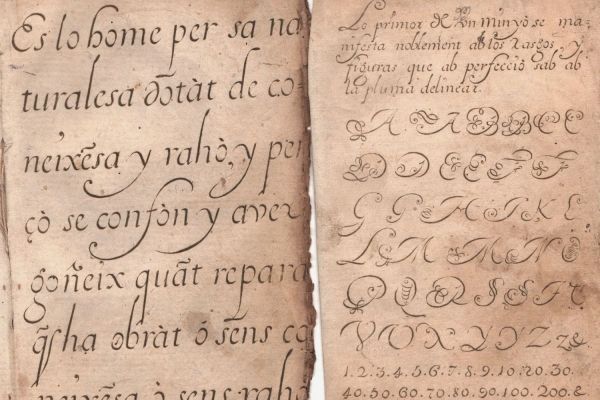 Es lo home per sa na
turalesa dõtàt de co-
neixẽsa y rahò, y per
çò se confòn y aver
goñeix quãt repara
q̃s ha obràt ó sẽns co
neixẽsa ò sens raho
Lo primor de un minyò se ma-
nifesta noblement ab los Rasgos, y
figuras que ab perfecciò sab ab
la pluma delinear.
A A B B C C
D D E E F F
G G H I K L
L M M N O
P Q R S S T t
V U X X Y Y Z z &
1. 2. 3. 4. 5. 6. 7. 8. 9. 10. 20. 30.
40. 50. 60. 70. 80. 90. 100. 200. &